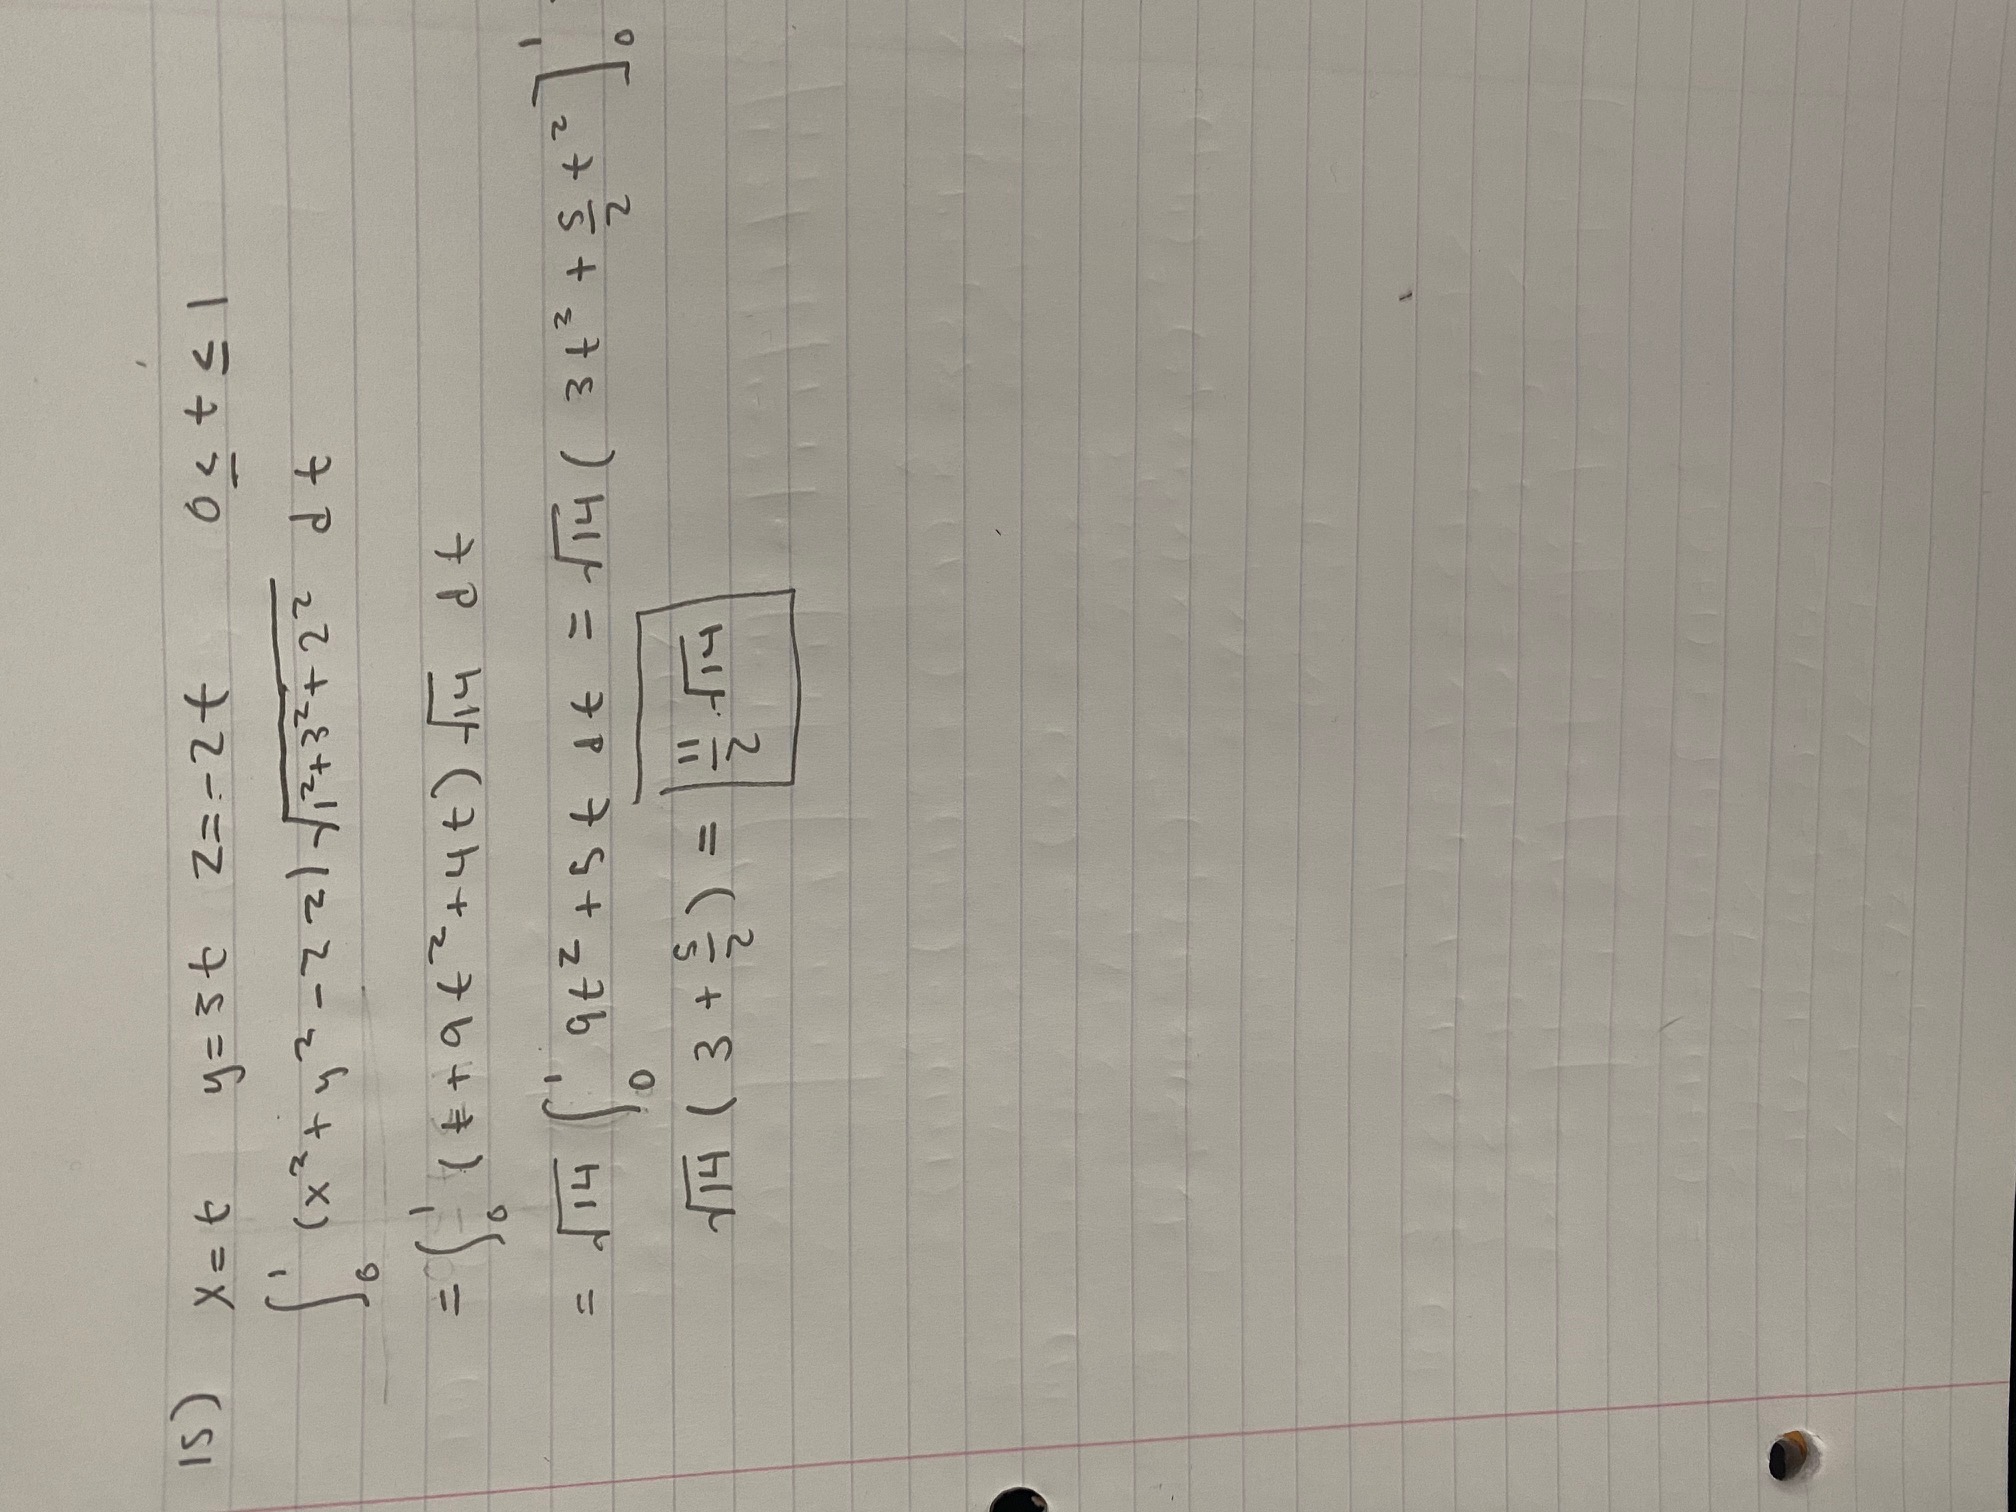 15) x = t y = 3t z = -2t 0 ≤ t ≤ 1
∫₀¹ (x² + y² - 2z) √(1² + 3² + 2²) dt
= ∫₀¹ (t + 9t² + 4t) √14 dt
= √14 ∫₀¹ 9t² + 5t dt = √14 ( 3t³ + 5/2 t² ]₀¹
√14 ( 3 + 5/2 ) = 11/2 · √14